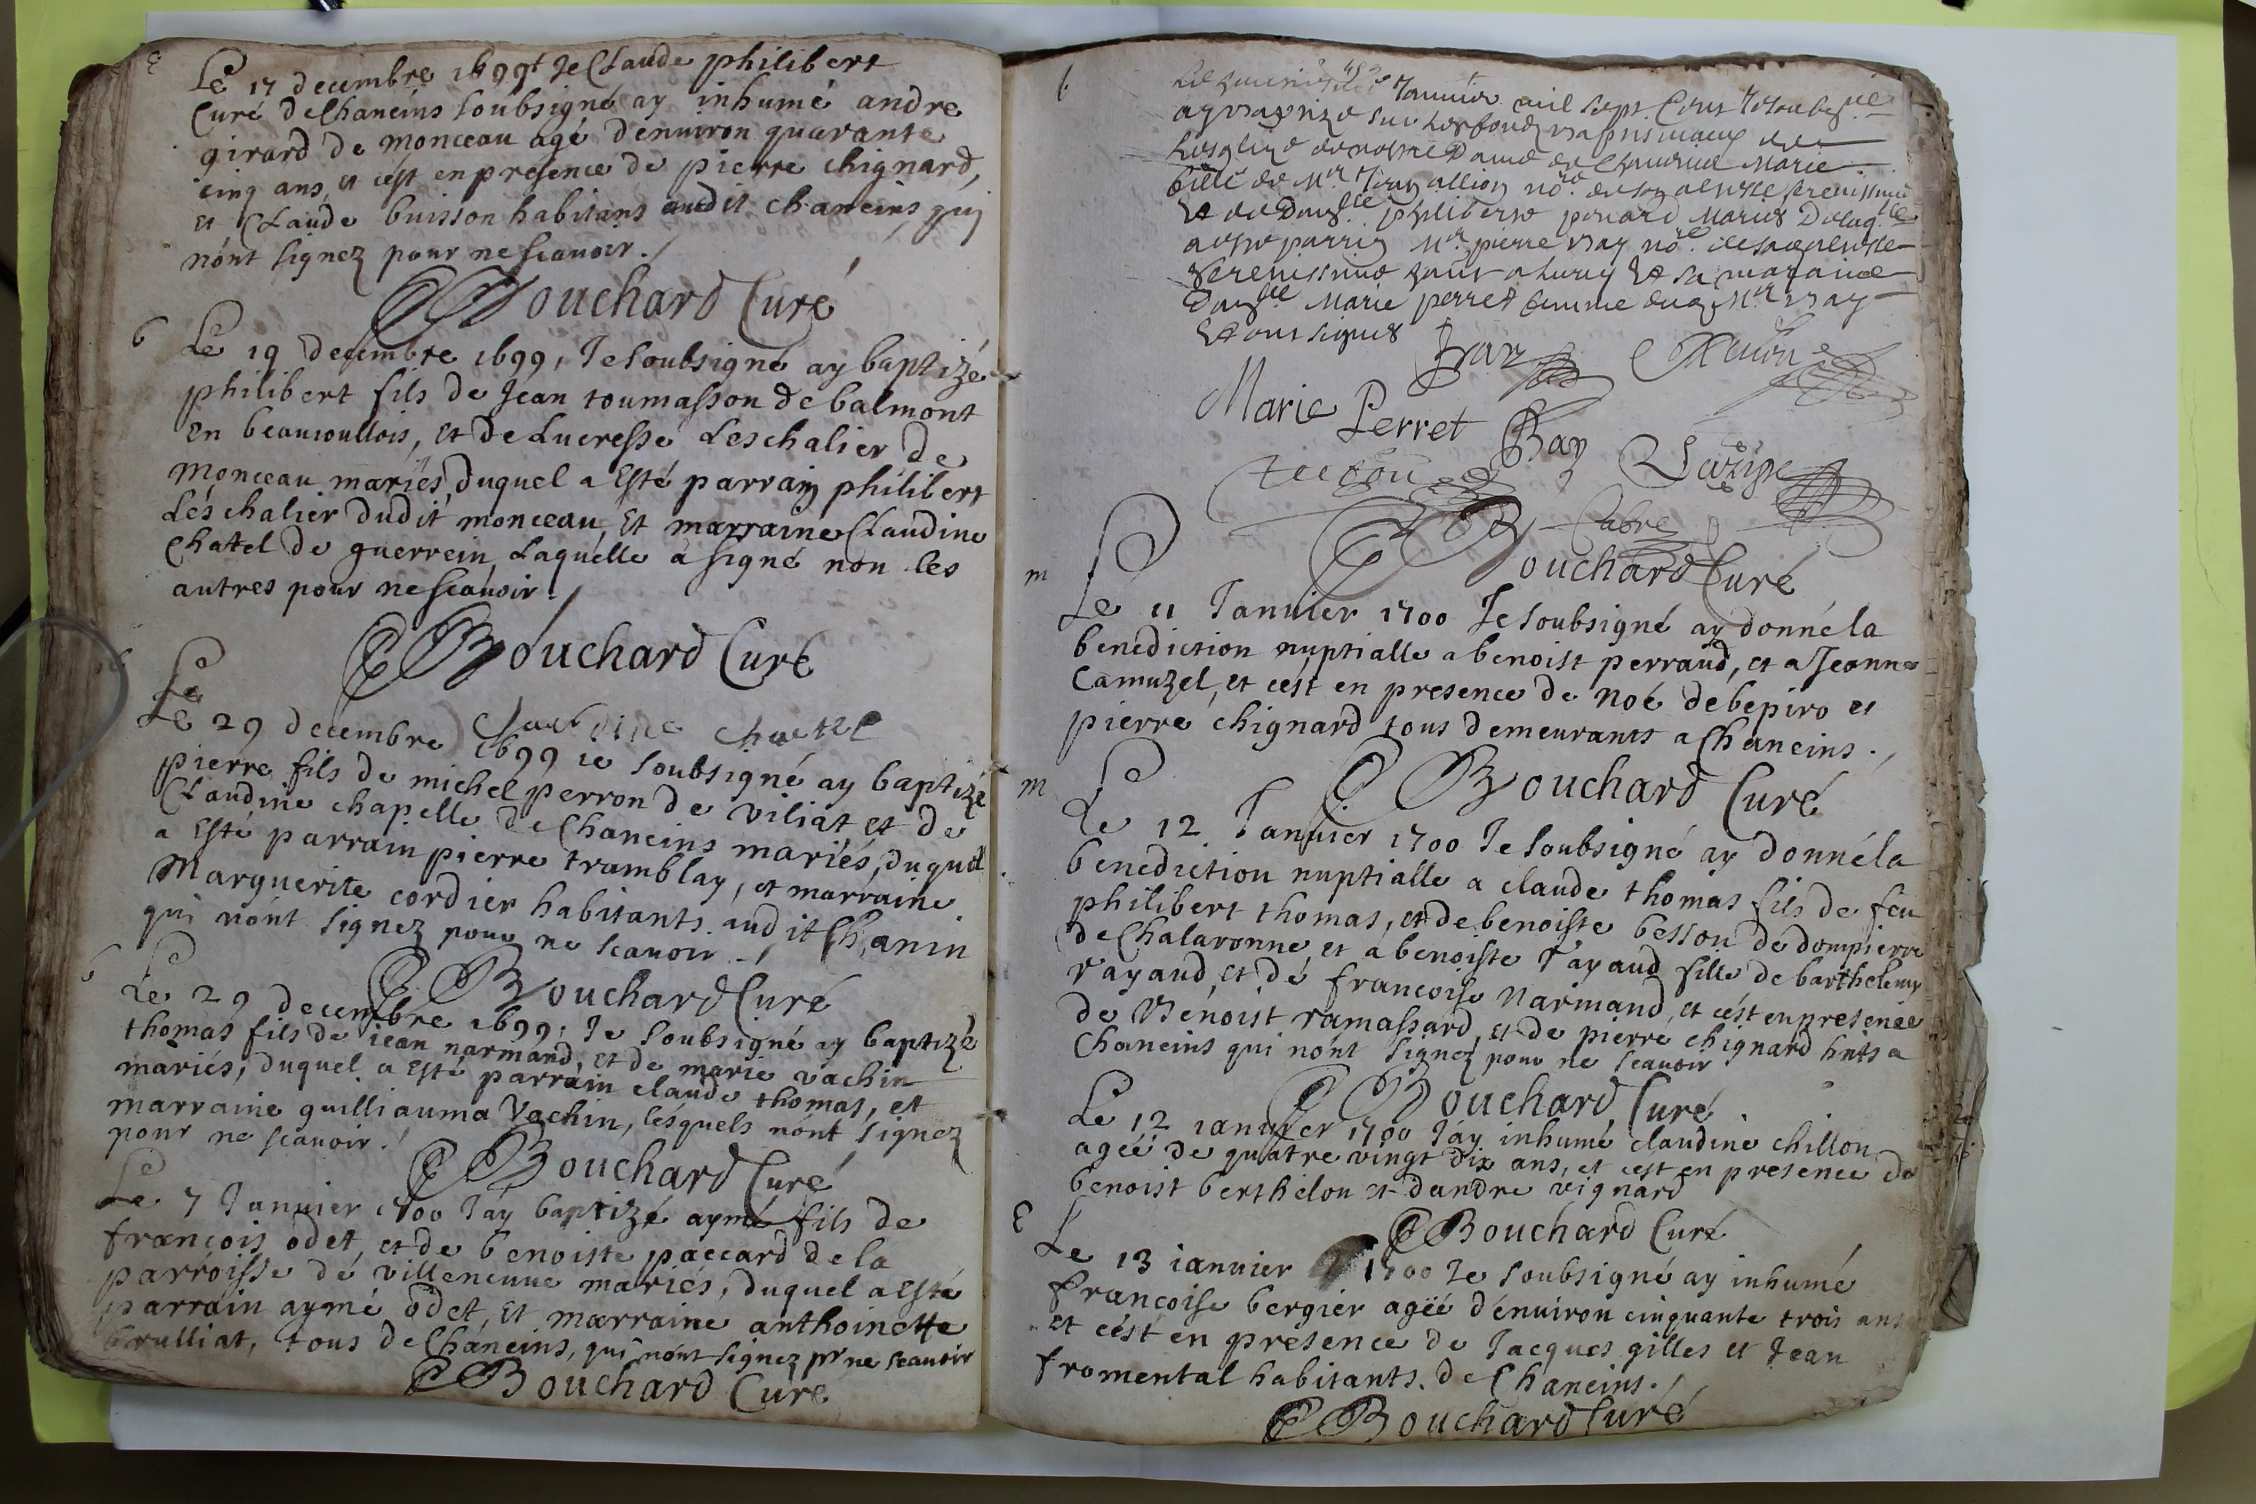 E
Le 17 decembre 1699 et Je Claude philibert
Curé de Chaneins soubsigné ay inhumé andre
girard de monceau agé denuiron quarante
cinq ans, et cést en présence de pierre chignard,
et Claude buisson habitans audit chaneins, qui
nónt signez pour ne scauoir./
Bouchard Curé
b
Le 19 decembre 1699, Je soubsigné ay baptizé
philibert fils de Jean toumasson de balmont
en beauioullois, et de Lucresse Leschalier de
monceau mariés, duquel a esté parrain philibert
Léschalier dudit monceau, et marraine Claudine
Chatel de guerrein, Laquélle a signé non les
autres pour ne scauoir./
Bouchard Curé
b
Claudine Chatel
Le 29 decembre 1699 ie soubsigné ay baptizé
pierre fils de michel perron de viliat et de
Claudine chapelle de Chaneins mariés, duquel
a esté parrain pierre tramblay, et marraine
Marguerite cordier habitants audit Chanin
qui nónt signez pour ne scauoir./
Bouchard Curé
b
Le 29 decembre 1699, Je soubsigné ay baptizé
thomas fils de iean narmand, et de marie vachin
mariés, duquel a esté parrain claude thomas, et
marraine guilliauma Vachin, lésquels nónt signez
pour ne scauoir./
Bouchard Curé
Le 7 Januier 1700 Jáy baptizé aymé fils de
françois odet, et de benoiste paccard de la
parroisse dé villeneuue mariés, duquel a esté
parrain aymé odet, et marraine anthoinette
brulliat, tous de Chaneins, qui nónt signez pr ne scauoir
Bouchard Curé
b
Januier mil sept Cens
ay baptizé sur les fonds baptismaux de
Lesglize de nostre Dame de Marie
fille de Mr allion nore de son altesse serenissime
Et de Damlle philiberte penard maries Delaqlle
a esté parrin Mr pierre bay nore de son altesse
serenissime Et sa maraine
Damlle Marie perret femme dud Mr bay
Et ont signes
Bay
Marie Perret
Bay
Cabre
Bouchard Curé
m
Le 11 Januier 1700 Je soubsigné ay donné la
benediction nuptialle a benoist perraud, et a Jeanne
Camuzel, et cést en presence de Noé debepiro et
pierre chignard tous demeurants a Chaneins./
Bouchard Curé
m
Le 12 Januier 1700 Je soubsigné ay donné la
benediction nuptialle a claude thomas fils de feu
philibert thomas, et de benoiste besson de dompierre
de Chalaronne, et a benoiste rayaud fille de barthelemy
rayaud, et dé françoise Narmand, et cést en presence
de Bénoist ramassard, et de pierre chignard hnts a
Chaneins qui nónt signez pour ne scauoir
Bouchard Curé
Le 12 ianuier 1700 Jáy inhumé claudine chillon
agéé de quatre vingt dix ans, et cest en presence de
benoist berthelon et dandre vignard
Bouchard Curé
E
Le 13 ianuier 1700 Je soubsigné ay inhumé
françoise bergier agéé dénuiron cinquante trois ans
et cést en presence de Jacques gilles et Jean
fromental habitants de Chaneins./
Bouchard Curé